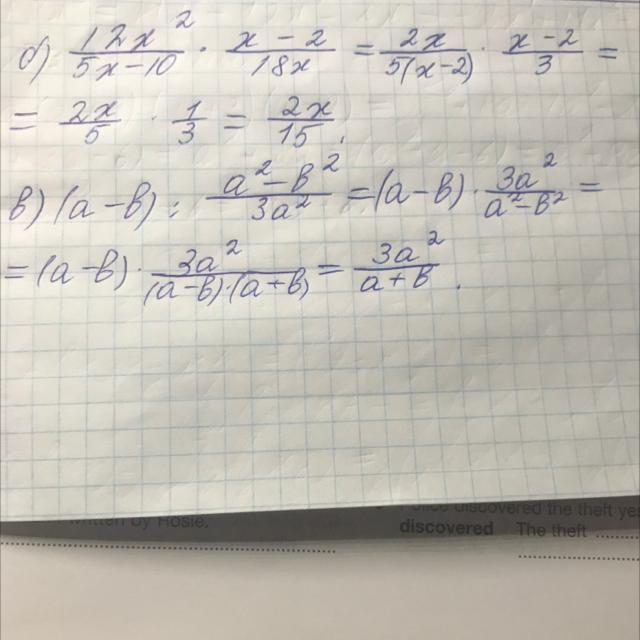 б) 12x²/(5x-10) · (x-2)/(18x) = 2x/(5(x-2)) · (x-2)/3 =
= 2x/5 · 1/3 = 2x/15.
в) (a-b) : (a²-b²)/(3a²) = (a-b) · 3a²/(a²-b²) =
= (a-b) · 3a²/((a-b)·(a+b)) = 3a²/(a+b).
written by Rosie.
Police discovered the theft yes
discovered The theft